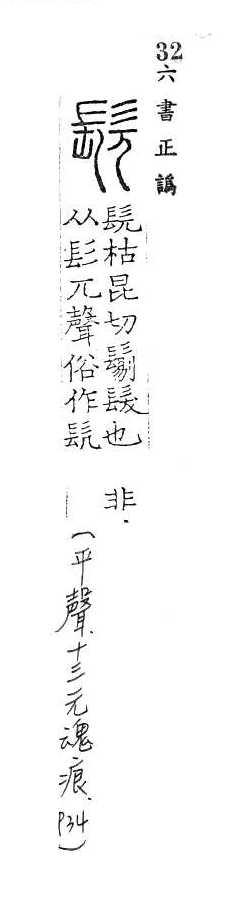 32六書正譌
髡枯昆切髮也
从髟兀聲俗作
非.
(平聲.十三元魂痕.P34)